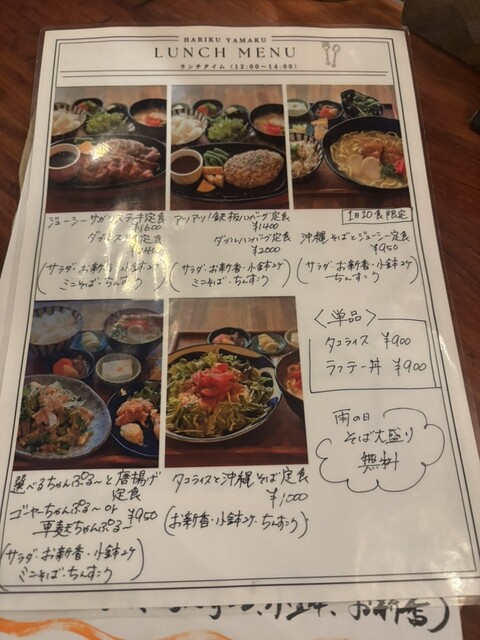 HARIKU YAMAKU
LUNCH MENU
ランチタイム (12:00〜14:00)
ジューシーサガリステーキ定食
¥1600
(サラダ・お新香・小鉢2ケ
ミニそば・ちんすこう)
アツアツ!鉄板ハンバーグ定食
¥1400
ダブルハンバーグ定食
¥2000
(サラダ・お新香・小鉢2ケ
ミニそば・ちんすこう)
1日10食限定
沖縄そばとジューシー定食
¥950
(サラダ・お新香・小鉢2ケ
ちんすこう)
〈単品〉
タコライス ¥900
ラフテー丼 ¥900
雨の日
そば大盛り
無料
選べるちゃんぷる〜と唐揚げ
定食
ゴーヤーちゃんぷる〜 or ¥950
車麩ちゃんぷる〜
(サラダ・お新香・小鉢2ケ
ミニそば・ちんすこう)
タコライスと沖縄そば定食
¥1000
(お新香・小鉢2ケ・ちんすこう)
小鉢、お新香)